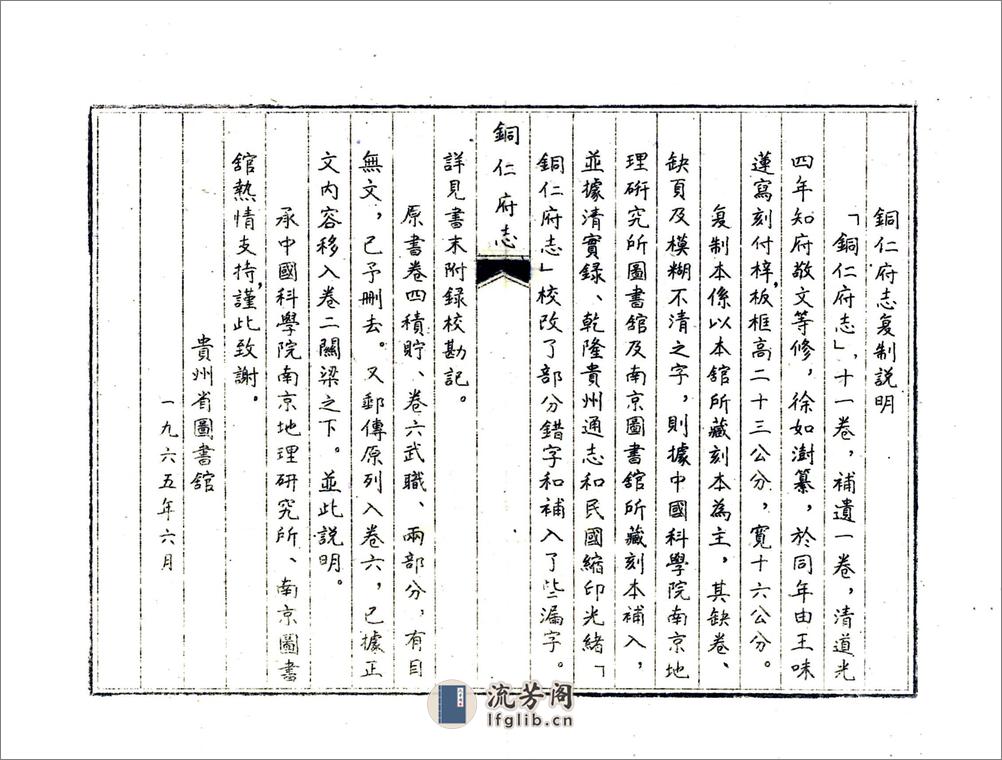 銅仁府志复制説明
「銅仁府志」，十一卷，補遺一卷，清道光
四年知府敬文等修，徐如澍纂，於同年由王味
蓮寫刻付梓，板框高二十三公分，寬十六公分。
复制本係以本舘所藏刻本為主，其缺卷、
缺頁及模糊不清之字，則據中國科學院南京地
理研究所圖書舘及南京圖書舘所藏刻本補入，
並據清實錄、乾隆貴州通志和民國縮印光緒「
銅仁府志」校改了部分錯字和補入了些漏字。
銅仁府志
詳見書末附録校勘記。
原書卷四積貯、卷六武職、兩部分，有目
無文，已予刪去。又郵傳原列入卷六，已據正
文內容移入卷二關梁之下。並此説明。
承中國科學院南京地理研究所、南京圖書
舘熱情支持，謹此致謝。
貴州省圖書舘
一九六五年六月
流芳阁
lfglib.cn